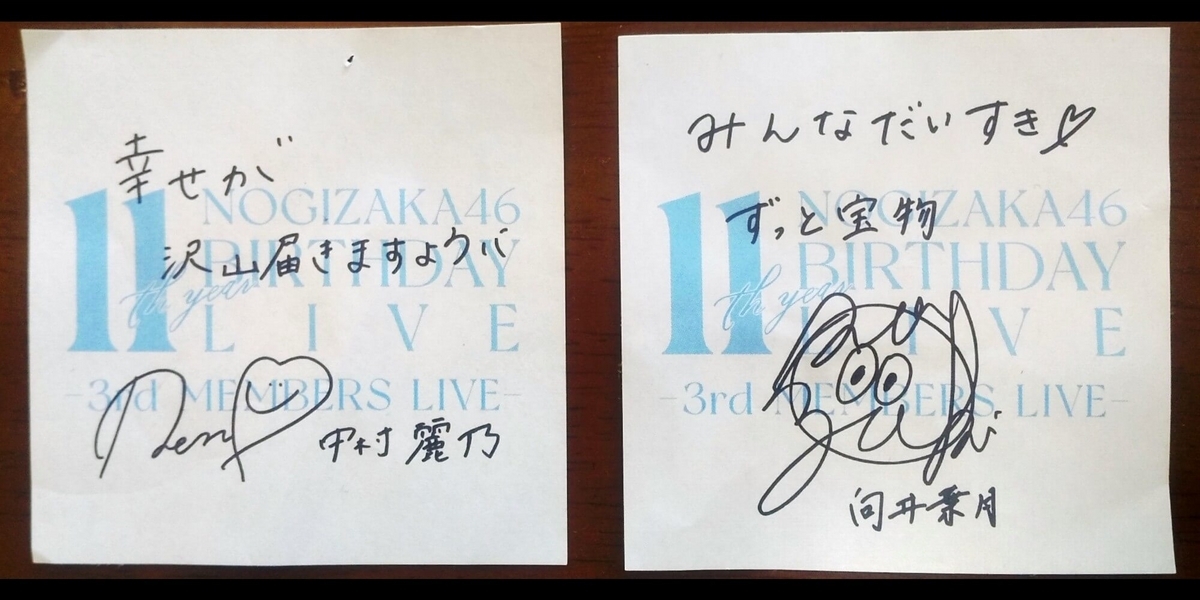 幸せが
沢山届きますように
11th year
NOGIZAKA46
BIRTHDAY
LIVE
-3rd MEMBERS LIVE-
中村麗乃
みんなだいすき
ずっと宝物
11th year
NOGIZAKA46
BIRTHDAY
LIVE
-3rd MEMBERS LIVE-
向井葉月